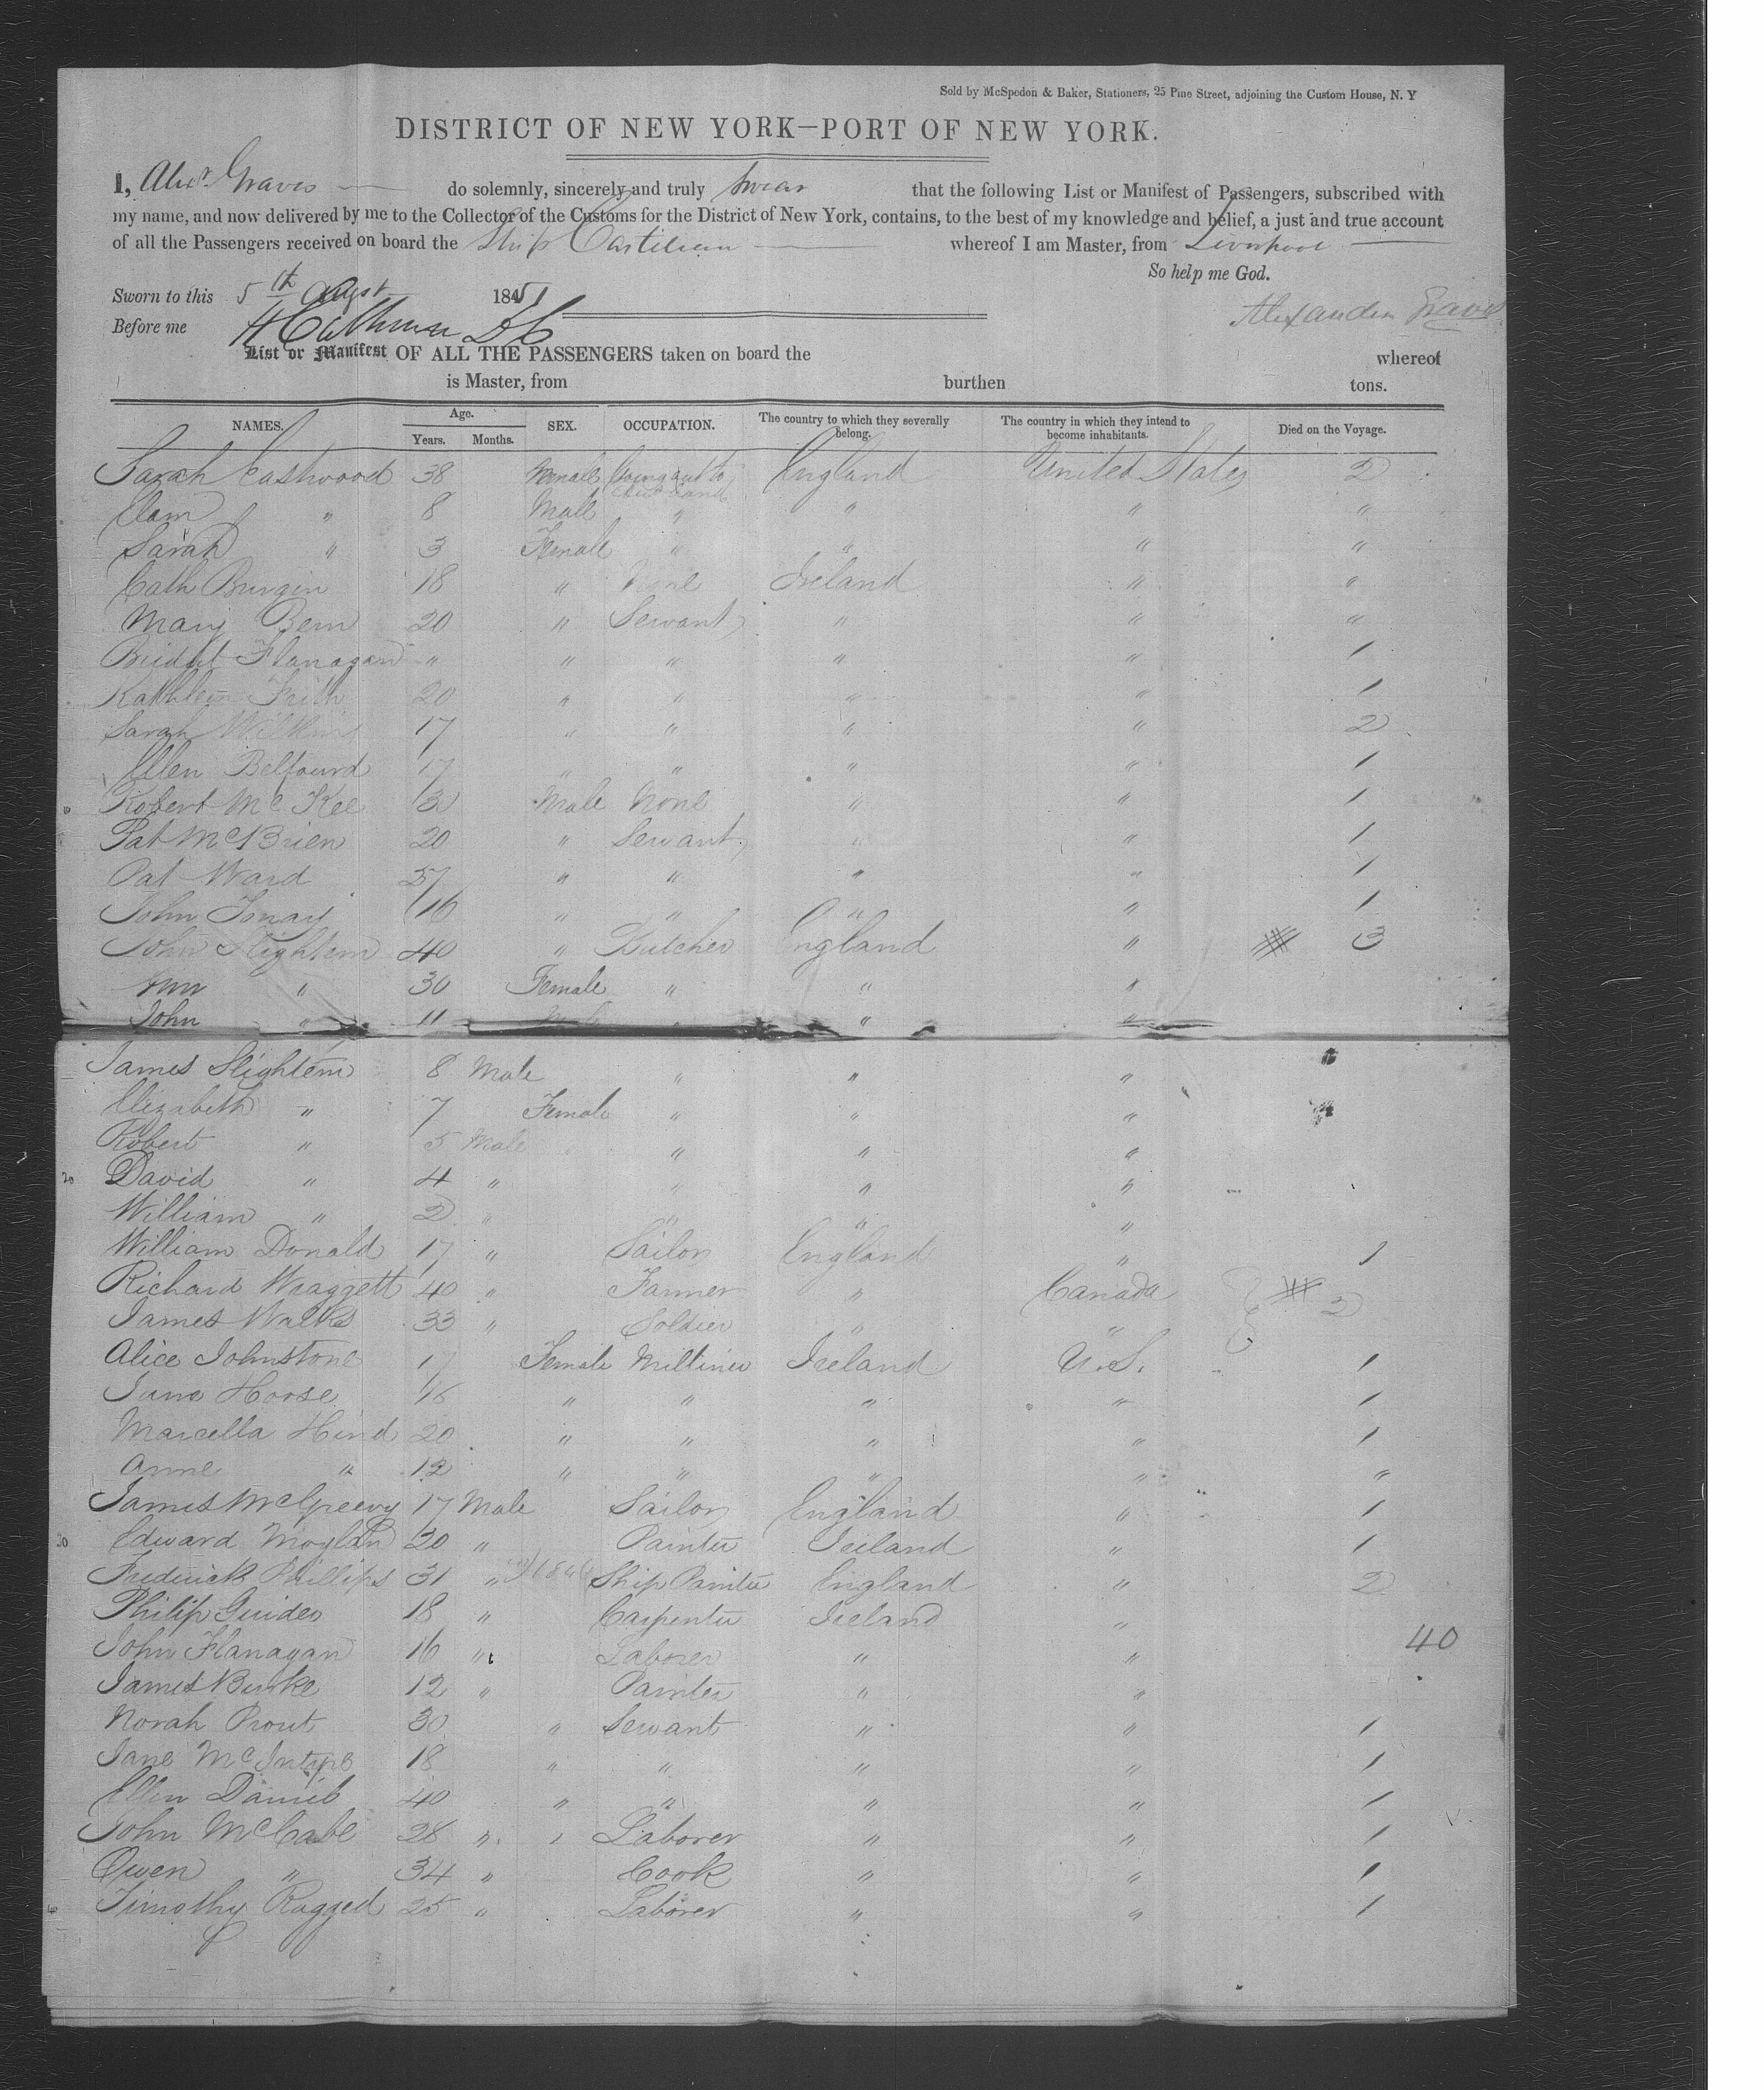 Sold by McSpedon & Baker, Stationers, 25 Pine Street, adjoining the Custom House, N. Y
DISTRICT OF NEW YORK—PORT OF NEW YORK.
I, Alexr Graves do solemnly, sincerely and truly swear that the following List or Manifest of Passengers, subscribed with
my name, and now delivered by me to the Collector of the Customs for the District of New York, contains, to the best of my knowledge and belief, a just and true account
of all the Passengers received on board the Ship Castilian whereof I am Master, from Liverpool
So help me God.
Sworn to this 5th Augst 1851
Alexander Graves
Before me
List or Manifest OF ALL THE PASSENGERS taken on board the whereof
is Master, from burthen tons.
NAMES. Age. Years. Months. SEX. OCCUPATION. The country to which they severally belong. The country in which they intend to become inhabitants. Died on the Voyage.
Sarah Eastwood 38 Female Going out to husband England United States 2
" 8 Male " " " "
Sarah " 3 Female " " " "
Cath 18 " None Ireland " "
Mary Bern 20 " Servant " " "
Bridget Flanagan " " " " " 1
Kathleen Frith 20 " " " " 1
Sarah Wilkins 17 " " " " 2
Ellen Belfourd 17 " " " " 1
10 Robert McKee 13 Male None " " 1
Pat McBrien 20 " Servant " " 1
Pat Ward 27 " " " " 1
John 16 " " " " 1
John Slightem 40 " Butcher England " 3
Ann " 30 Female " " "
John " 11 Male " "
James Slightem 8 Male " " "
Elizabeth " 7 Female " " "
Robert " 5 Male " " "
20 David " 4 " " " "
William " 2 " " " "
William Donald 17 " Sailor England " 1
Richard Wraggett 40 " Farmer " Canada 2
James Walks 33 " Soldier " "
Alice Johnstone 17 Female Milliner Ireland U.S. 1
Jane Hoose 16 " " " " 1
Marcella Hind 20 " " " " 1
Anne " 12 " " " " "
James McGreevy 17 Male Sailor England " 1
30 Edward Moylan 20 " Painter Ireland " 1
Frederick Phillips 31 " Ship Painter England " 2
Philip 18 " Carpenter Ireland "
John Flanagan 16 " Laborer " " 40
James Burke 12 " Painter " "
Norah Prout 30 " Servant " " 1
Jane McIntyre 18 " " " " 1
Ellen Daniel 40 " " " " 1
John McCabe 28 " Laborer " " 1
Owen " 34 " Cook " " 1
40 Timothy Ragged 25 " Laborer " " 1